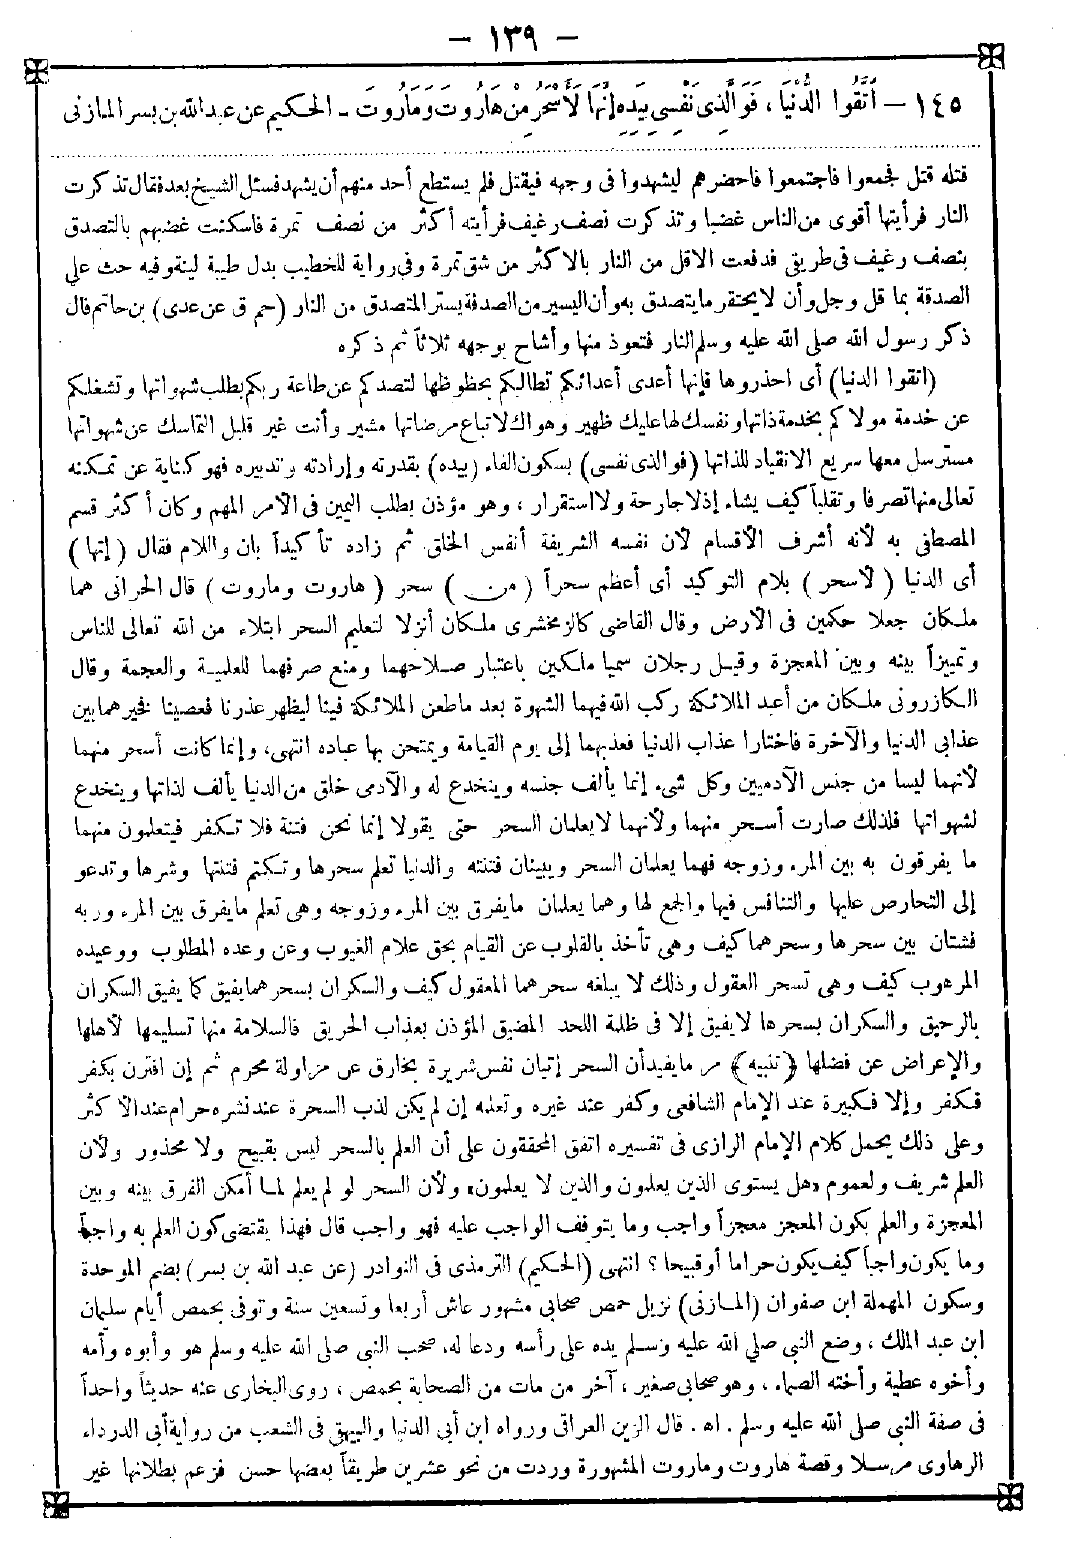 – ١٣٩ –
١٤٥ – اتَّقُوا الدُّنْيَا، فَوَالَّذِى نَفْسِى بِيَدِهِ إِنَّهَا لَأَسْحَرُ مِنْ هَارُوتَ وَمَارُوتَ – الحكيم عن عبدالله بن بسر المازنى
قتله قتل فجمعوا فاجتمعوا فاحضرهم ليشهدوا فى وجهه فيقتل فلم يستطع أحد منهم أن يشهد فسئل الشيخ بعد فقال تذكرت
النار فرأيتها أقوى من الناس غضبا وتذكرت نصف رغيف فرأيته أكثر من نصف تمرة فاسكنت غضبهم بالتصدق
بنصف رغيف فى طريقى فدفعت الاقل من النار بالاكثر من شق تمرة وفى رواية للخطيب بدل طيبة لينة وفيه حث على
الصدقة بما قل وجل وأن لا يحتقر ما يتصدق به وأن اليسير من الصدقة يستر المتصدق من النار (حم ق عن عدى) بن حاتم قال
ذكر رسول الله صلى الله عليه وسلم النار فتعوذ منها وأشاح بوجهه ثلاثاً ثم ذكره
(اتقوا الدنيا) أى احذروها فإنها أعدى أعدائكم تطالبكم بحظوظها لتصدكم عن طاعة ربكم بطلب شهواتها وتشغلكم
عن خدمة مولاكم بخدمة ذاتها ونفسك لها عليك ظهير وهواك لاتباع مرضاتها مشير وأنت غير قليل التماسك عن شهواتها
مسترسل معها سريع الانقياد للذاتها (فوالذى نفسى) بسكون الفاء (بيده) بقدرته وإرادته وتدبيره فهو كناية عن تمكنه
تعالى منها تصرفا وتقلباً كيف يشاء إذ لا جارحة ولا استقرار، وهو مؤذن بطلب اليمين فى الأمر المهم وكان أكثر قسم
المصطفى به لأنه أشرف الأقسام لأن نفسه الشريفة أنفس الخلق ثم زاده تأكيداً بان واللام فقال (إنها)
أى الدنيا (لأسحر) بلام التوكيد أى أعظم سحراً (من) سحر (هاروت وماروت) قال الحرانى هما
ملكان جعلا حكمين فى الأرض وقال القاضى كالزمخشرى ملكان أنزلا لتعليم السحر ابتلاء من الله تعالى للناس
وتمييزاً بينه وبين المعجزة وقيل رجلان سميا ملكين باعتبار صلاحهما ومنع صرفهما للعلمية والعجمة وقال
الكازرونى ملكان من أعبد الملائكة ركب الله فيهما الشهوة بعد ما طعن الملائكة فينا ليظهر عذرنا فعصيا فخيرهما بين
عذابى الدنيا والآخرة فاختارا عذاب الدنيا فعذبهما إلى يوم القيامة ويمتحن بها عباده انتهى، وإنما كانت أسحر منهما
لأنهما ليسا من جنس الآدميين وكل شىء إنما يألف جنسه وينخدع له والآدمى خلق من الدنيا يألف لذاتها وينخدع
لشهواتها فلذلك صارت أسحر منهما ولأنهما لايعلمان السحر حتى يقولا إنما نحن فتنة فلا تكفر فيتعلمون منهما
ما يفرقون به بين المرء وزوجه فهما يعلمان السحر ويبينان فتنته والدنيا تعلم سحرها وتكتم فتنتها وشرها وتدعو
إلى التحارص عليها والتنافس فيها والجمع لها وهما يعلمان مايفرق بين المرء وزوجه وهى تعلم مايفرق بين المرء وربه
فشتان بين سحرها وسحرهما كيف وهى تأخذ بالقلوب عن القيام بحق علام الغيوب وعن وعده المطلوب ووعيده
المرهوب كيف وهى تسحر العقول وذلك لا يبلغه سحرهما المعقول كيف والسكران بسحرهما يفيق كما يفيق السكران
بالرحيق والسكران بسحرها لا يفيق إلا فى ظلمة اللحد المضيق المؤذن بعذاب الحريق فالسلامة منها تسليمها لأهلها
والإعراض عن فضلها ﴿تنبيه﴾ مر مايفيدأن السحر إتيان نفس شريرة بخارق عن مزاولة محرم ثم إن اقترن بكفر
فكفر وإلا فكبيرة عند الإمام الشافعى وكفر عند غيره وتعلمه إن لم يكن لذب السحرة عند نشره حرام عند الأكثر
وعلى ذلك يحمل كلام الإمام الرازى فى تفسيره اتفق المحققون على أن العلم بالسحر ليس بقبيح ولا محذور ولأن
العلم شريف ولعموم «هل يستوى الذين يعلمون والذين لا يعلمون» ولأن السحر لو لم يعلم لما أمكن الفرق بينه وبين
المعجزة والعلم بكون المعجز معجزاً واجب وما يتوقف الواجب عليه فهو واجب قال فهذا يقتضى كون العلم به واجباً
وما يكون واجباً كيف يكون حراما أو قبيحا؟ انتهى (الحكيم) الترمذى فى النوادر (عن عبد الله بن بسر) بضم الموحدة
وسكون المهملة ابن صفوان (المازنى) نزيل حمص صحابى مشهور عاش أربعا وتسعين سنة وتوفى بحمص أيام سليمان
ابن عبد الملك، وضع النبى صلى الله عليه وسلم يده على رأسه ودعا له، صحب النبى صلى الله عليه وسلم هو وأبوه وأمه
وأخوه عطية وأخته الصماء، وهو صحابى صغير، آخر من مات من الصحابة بحمص، روى البخارى عنه حديثاً واحداً
فى صفة النبى صلى الله عليه وسلم. اهـ. قال الزين العراقى ورواه ابن أبى الدنيا والبيهقى فى الشعب من رواية أبى الدرداء
الرهاوى مرسلا وقصة هاروت وماروت المشهورة وردت من نحو عشرين طريقاً بعضها حسن فزعم بطلانها غير